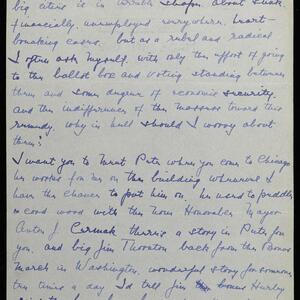 big cities is in terrible shape. about sunk
financially, unemployed everywhere. heart-
breaking cases. but as a rebel and radical
I often ask myself, with only the effort of going
to the ballot box and voting standing between
them and some degree of economic security.
and the indifference of the masses toward this
remedy, why in hell should I worry about
them?
I want you to meet Pete when you come to Chicago
he works for me on this building whenever I
have the chance to put him on. he used to peddle
cord wood with the now Honorable Mayor
Anton J. Cermak there's a story in Pete for
you. and big Jim Thornton back from the Bonus
march in Washington, wonderful story for someone
ten times a day I'd tell Jim bonus Hurley